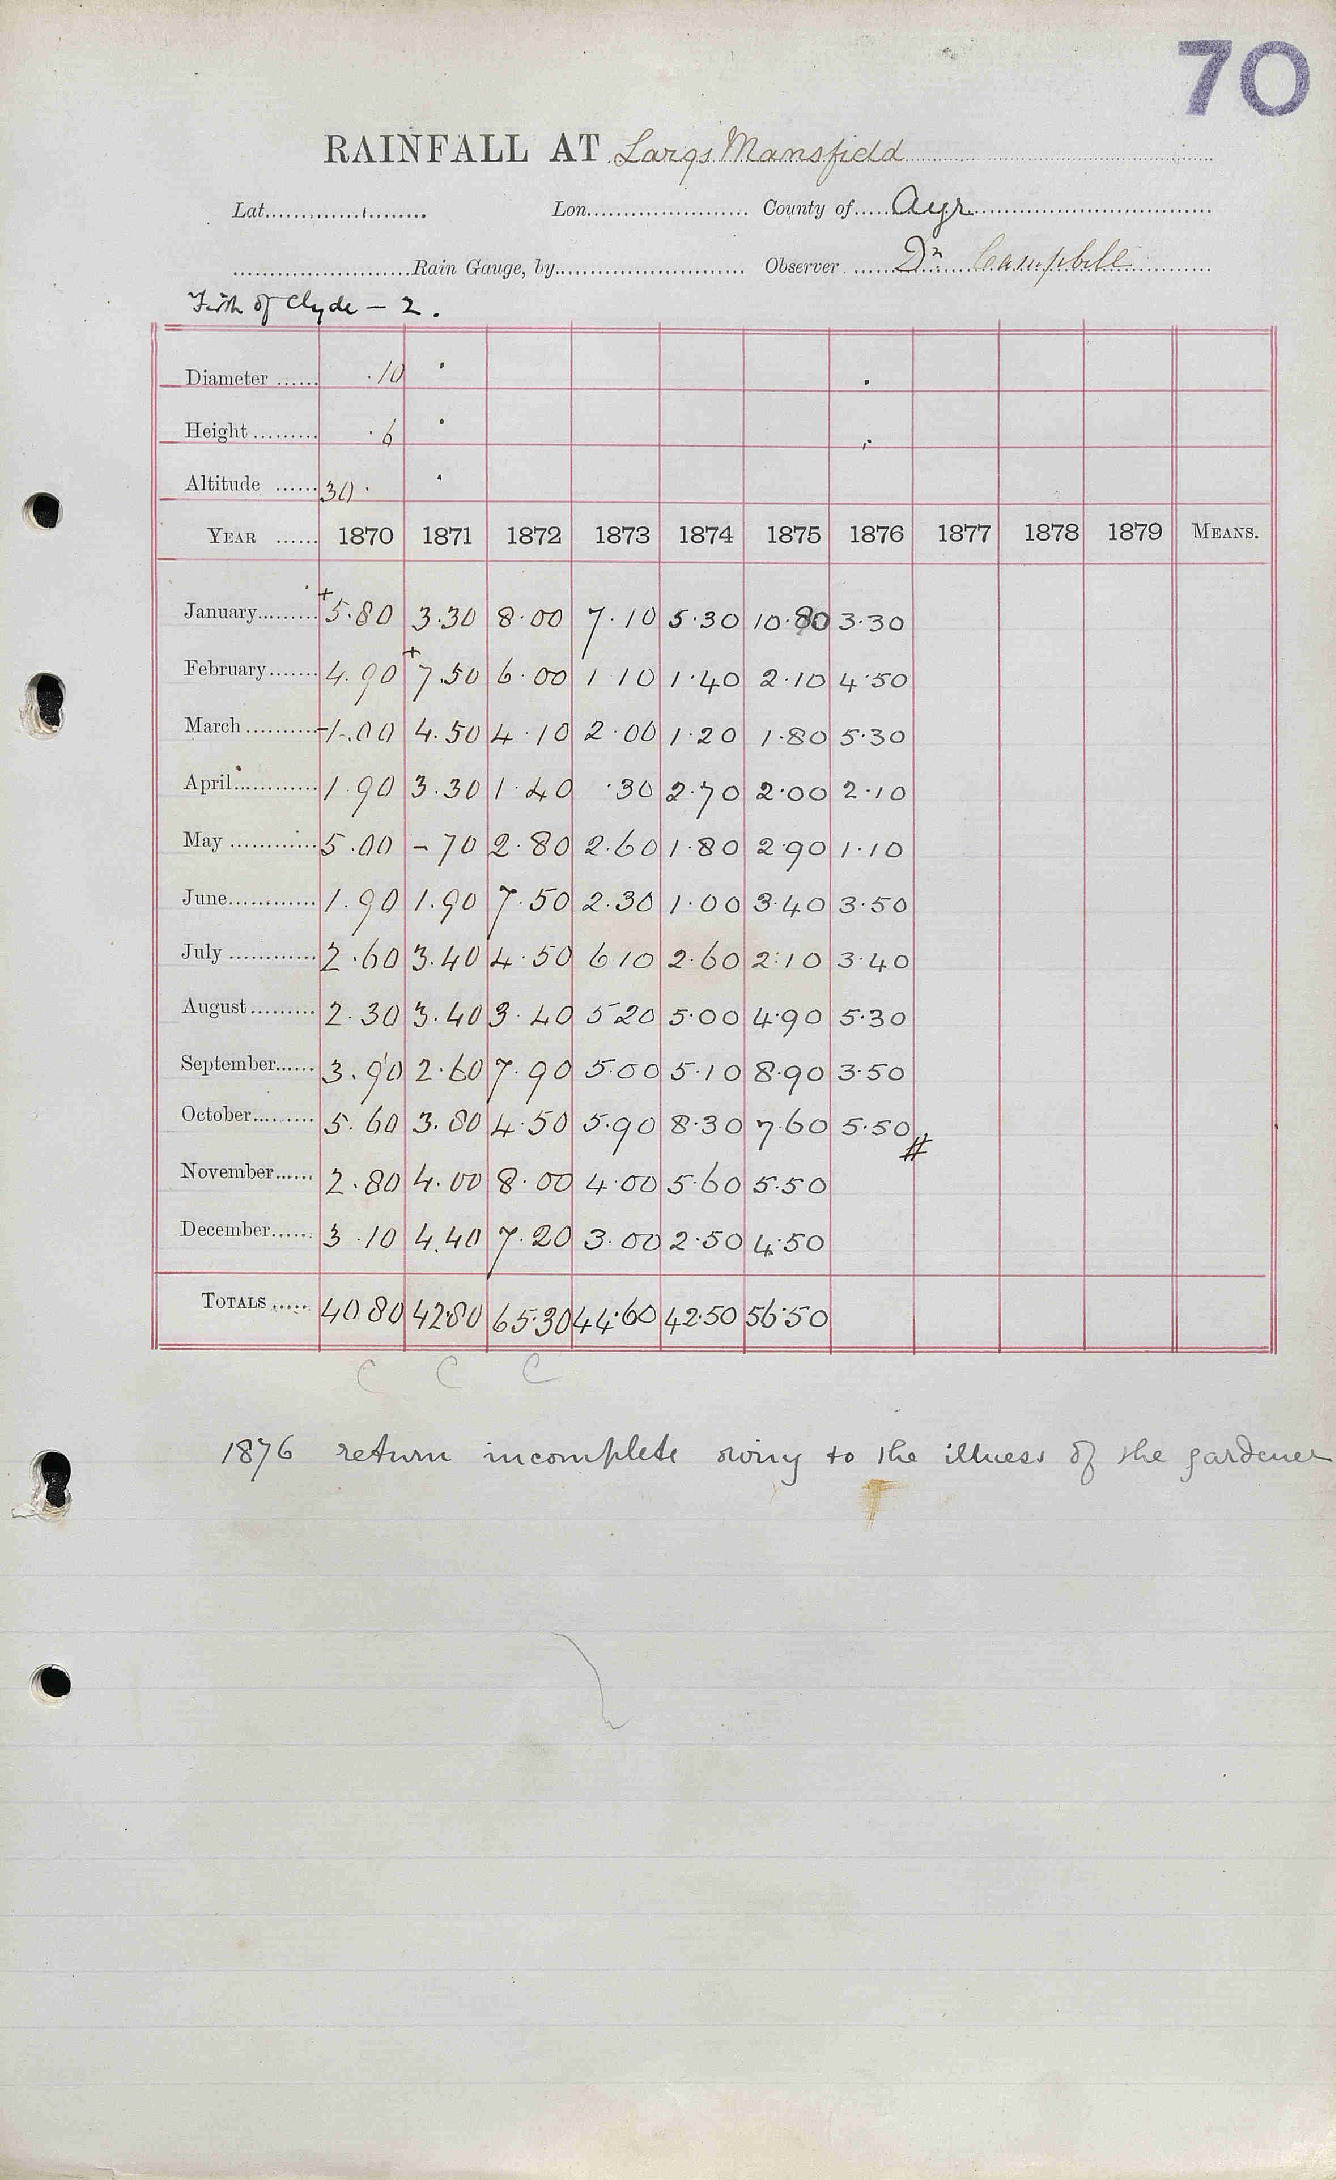 70
RAINFALL AT Largs Mansfield
Lat. Lon. County of Ayr
Rain Gauge, by Observer Dr Campbell
Firth of Clyde – 2.
Diameter ·10 ·  ·
Height ·6 ·  ·
Altitude 30· ·
YEAR 1870 1871 1872 1873 1874 1875 1876 1877 1878 1879 MEANS.
January +5.80 3.30 8.00 7.10 5.30 10.80 3.30
February 4.90 +7.50 6.00 1 10 1.40 2.10 4.50
March -1.00 4.50 4.10 2.00 1.20 1.80 5.30
April 1 90 3.30 1.40 .30 2.70 2.00 2.10
May 5.00 -70 2.80 2.60 1.80 2.90 1.10
June 1.90 1.90 7.50 2.30 1.00 3.40 3.50
July 2.60 3.40 4.50 6 10 2.60 2.10 3.40
August 2.30 3.40 3.40 5 20 5.00 4.90 5.30
September 3.90 2.60 7.90 5.00 5.10 8.90 3.50
October 5.60 3.80 4.50 5.90 8.30 7.60 5.50 #
November 2.80 4.00 8.00 4.00 5.60 5.50
December 3 10 4.40 7.20 3.00 2.50 4.50
TOTALS 40 80 42.80 65.30 44.60 42.50 56.50
C C C
1876 return incomplete owing to the illness of the gardener